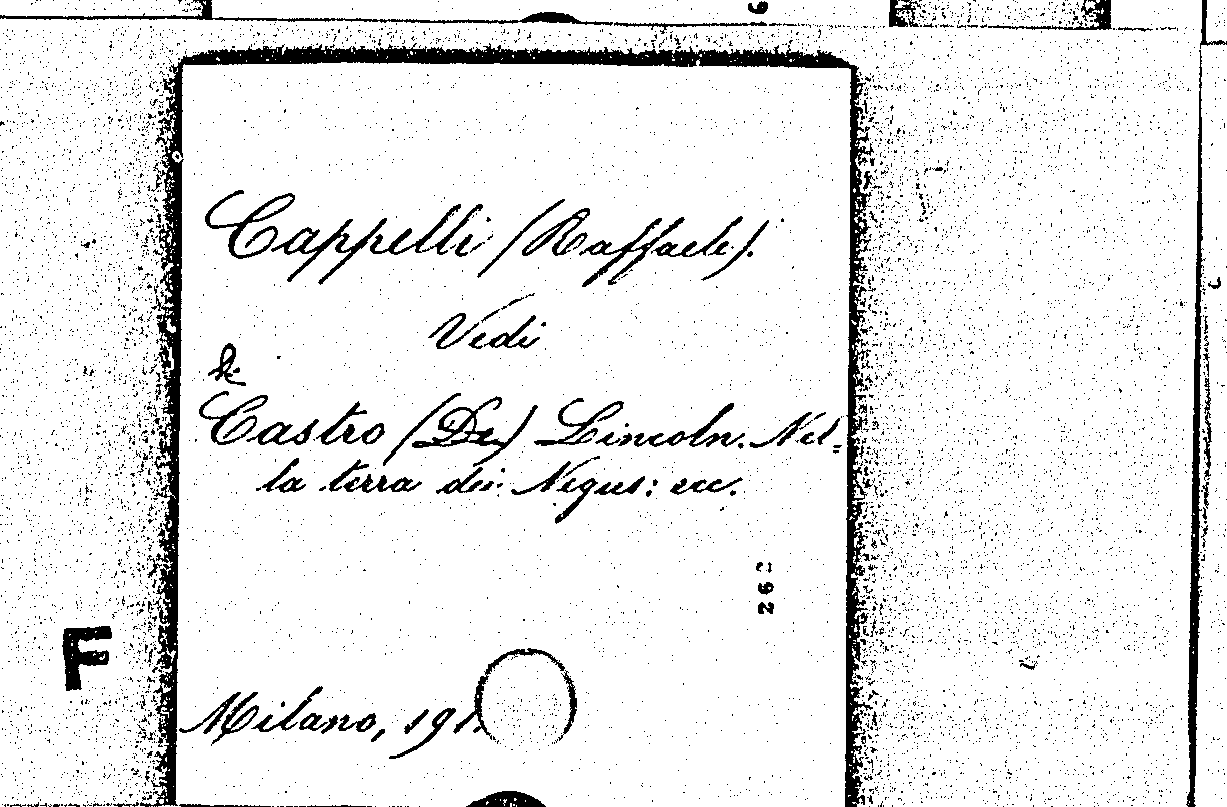 Cappelli (Raffaele).
Vedi
De
Castro (De) Lincoln. Nel-
la terra dei Negus: ecc.
268
F
Milano, 191